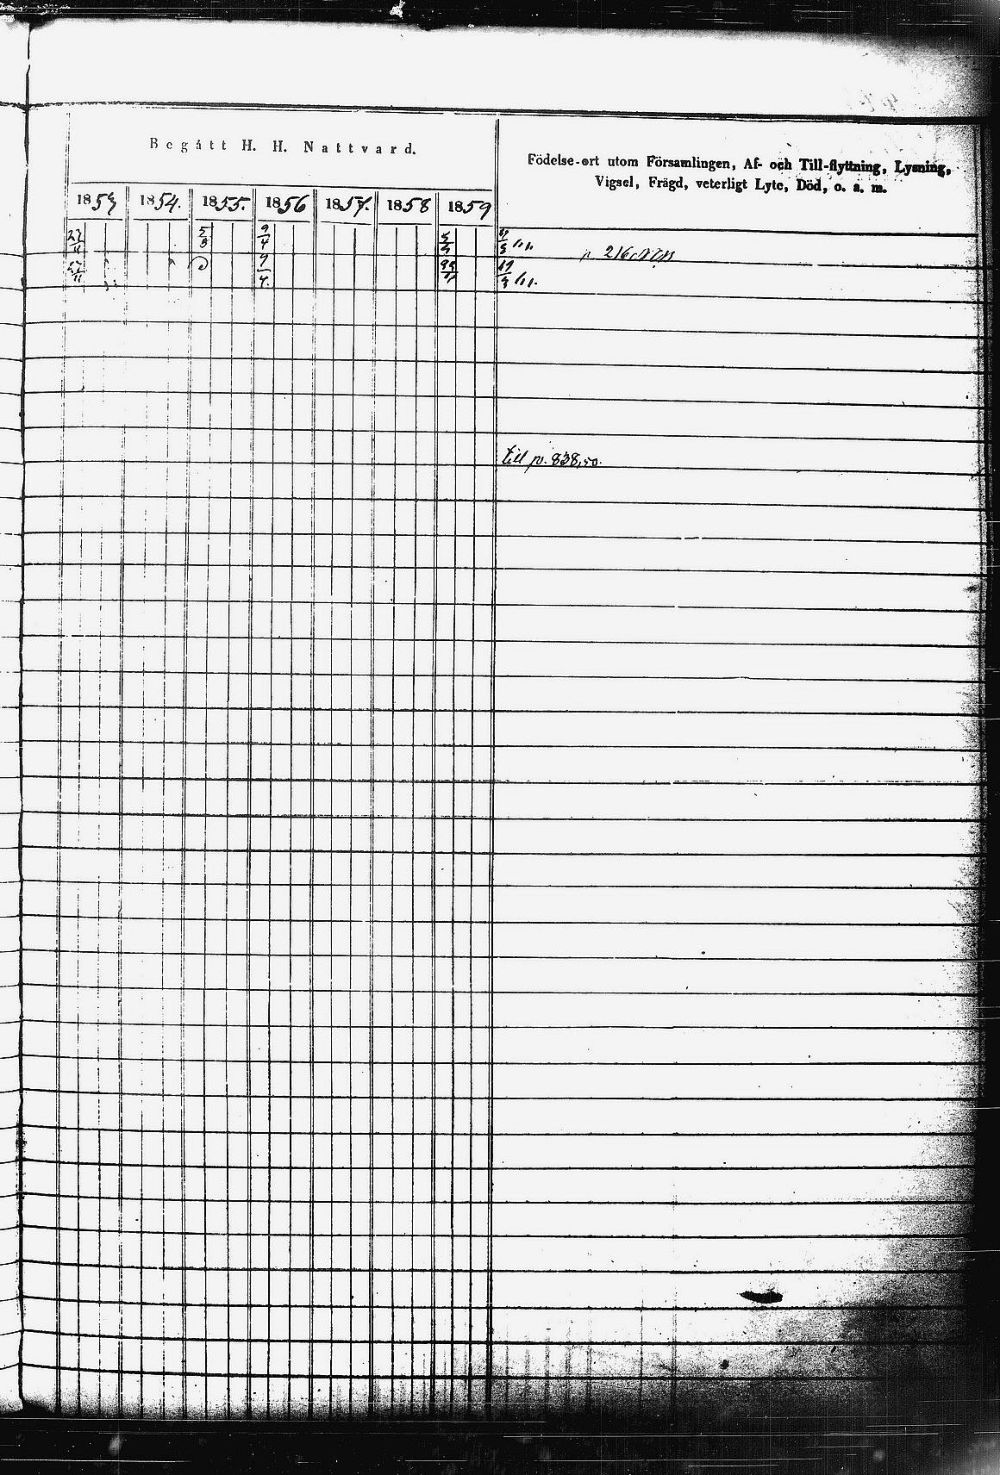 Begått H. H. Nattvard.
Födelse-ort utom Församlingen, Af- och Till-flyttning, Lysning,
Vigsel, Frägd, veterligt Lyte, Död, o. a. m.
1853 1854. 1855. 1856 1857. 1858 1859
27/11 5/8 9/4
p 216
27/11 9/4.
till p. 838,50.